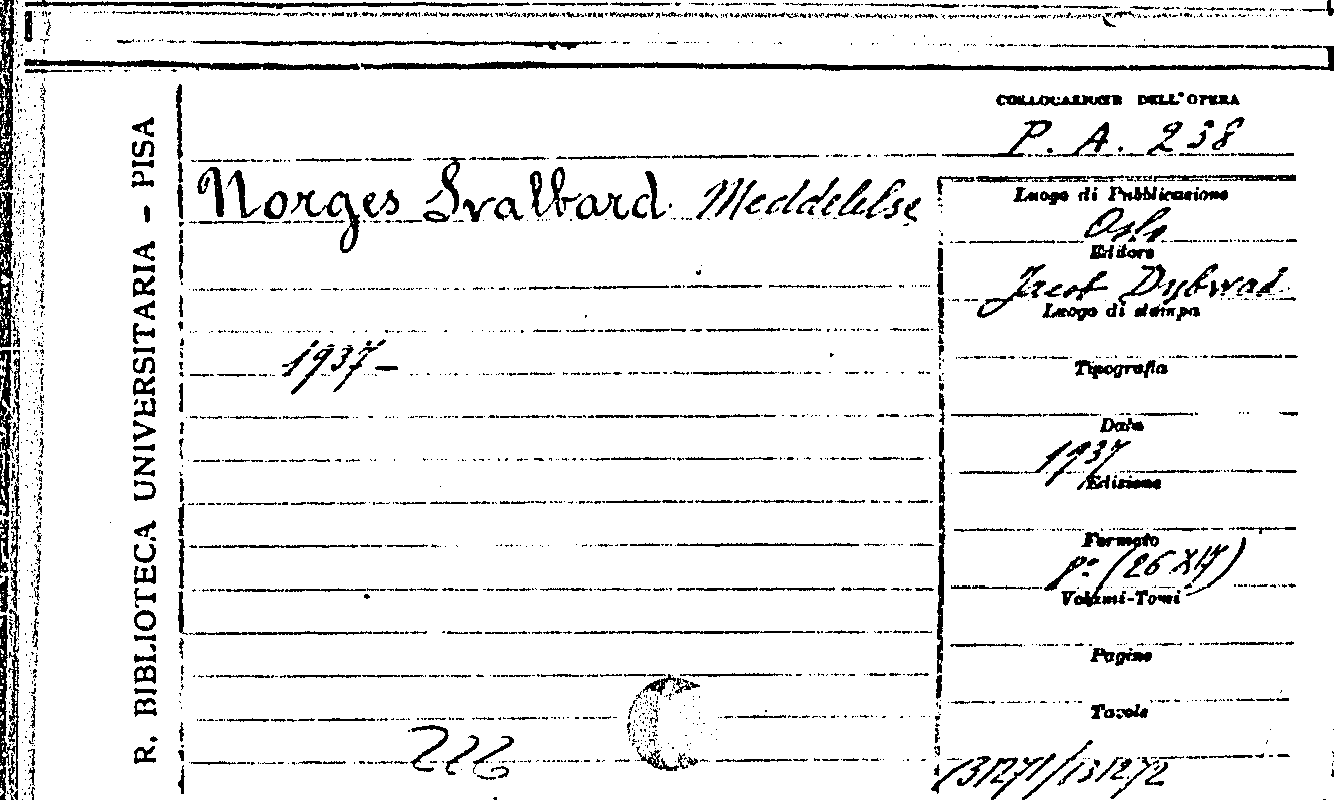 R. BIBLIOTECA UNIVERSITARIA - PISA
COLLOCAZIONE DELL'OPERA
P. A. 238
Norges Svalbard Meddelelse
1937-
Luogo di Pubblicazione
Oslo
Editore
Jacob Dybwad
Luogo di stampa
Tipografia
Data
1937
Edizione
Formato
(26 X 17)
Volumi-Tomi
Pagine
Tavole
131271/131272